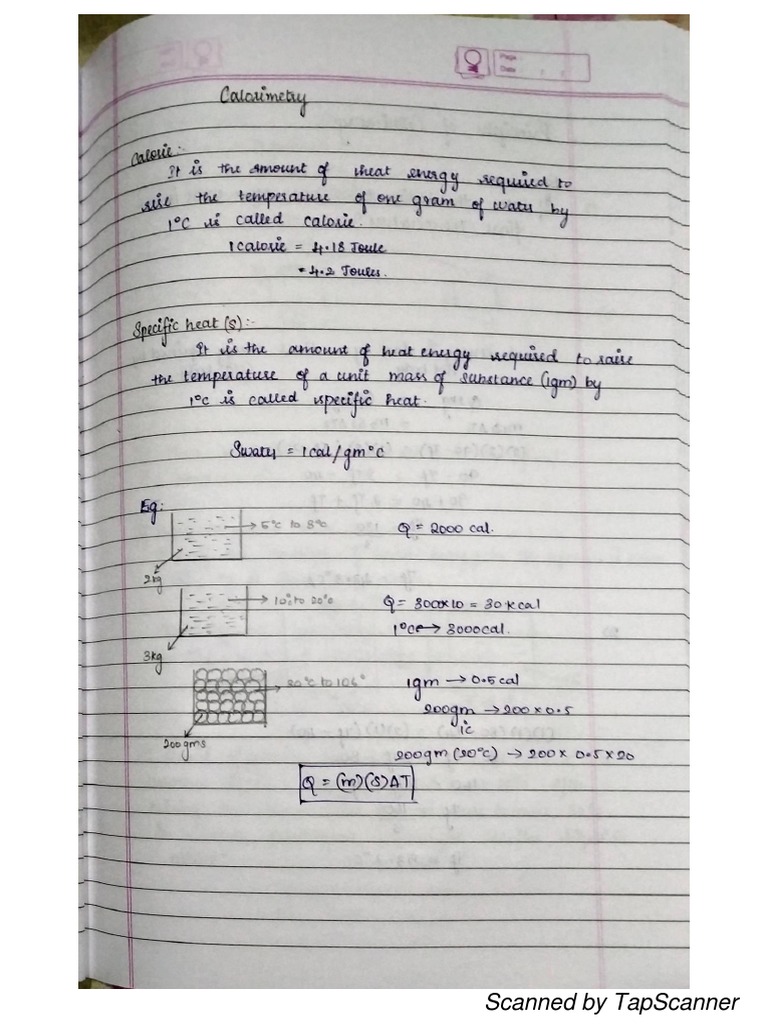 Page :
Date : / /
Calorimetry
Calorie:-
It is the amount of heat energy required to
rise the temperature of one gram of water by
1°C is called calorie.
1 calorie = 4.18 Joule
= 4.2 Joules.
Specific heat (s):-
It is the amount of heat energy required to raise
the temperature of a unit mass of substance (1gm) by
1°C is called specific heat.
Swater = 1cal/gm°C
Eg:
Q = 2000 cal.
2kg
10°c to 20°c
Q = 300×10 = 30kcal
1°C → 3000cal.
3kg
1gm → 0.5cal
200gm → 200×0.5
1c
200gms
200gm (20°c) → 200× 0.5×20
Q = (m)(s)ΔT
Scanned by TapScanner